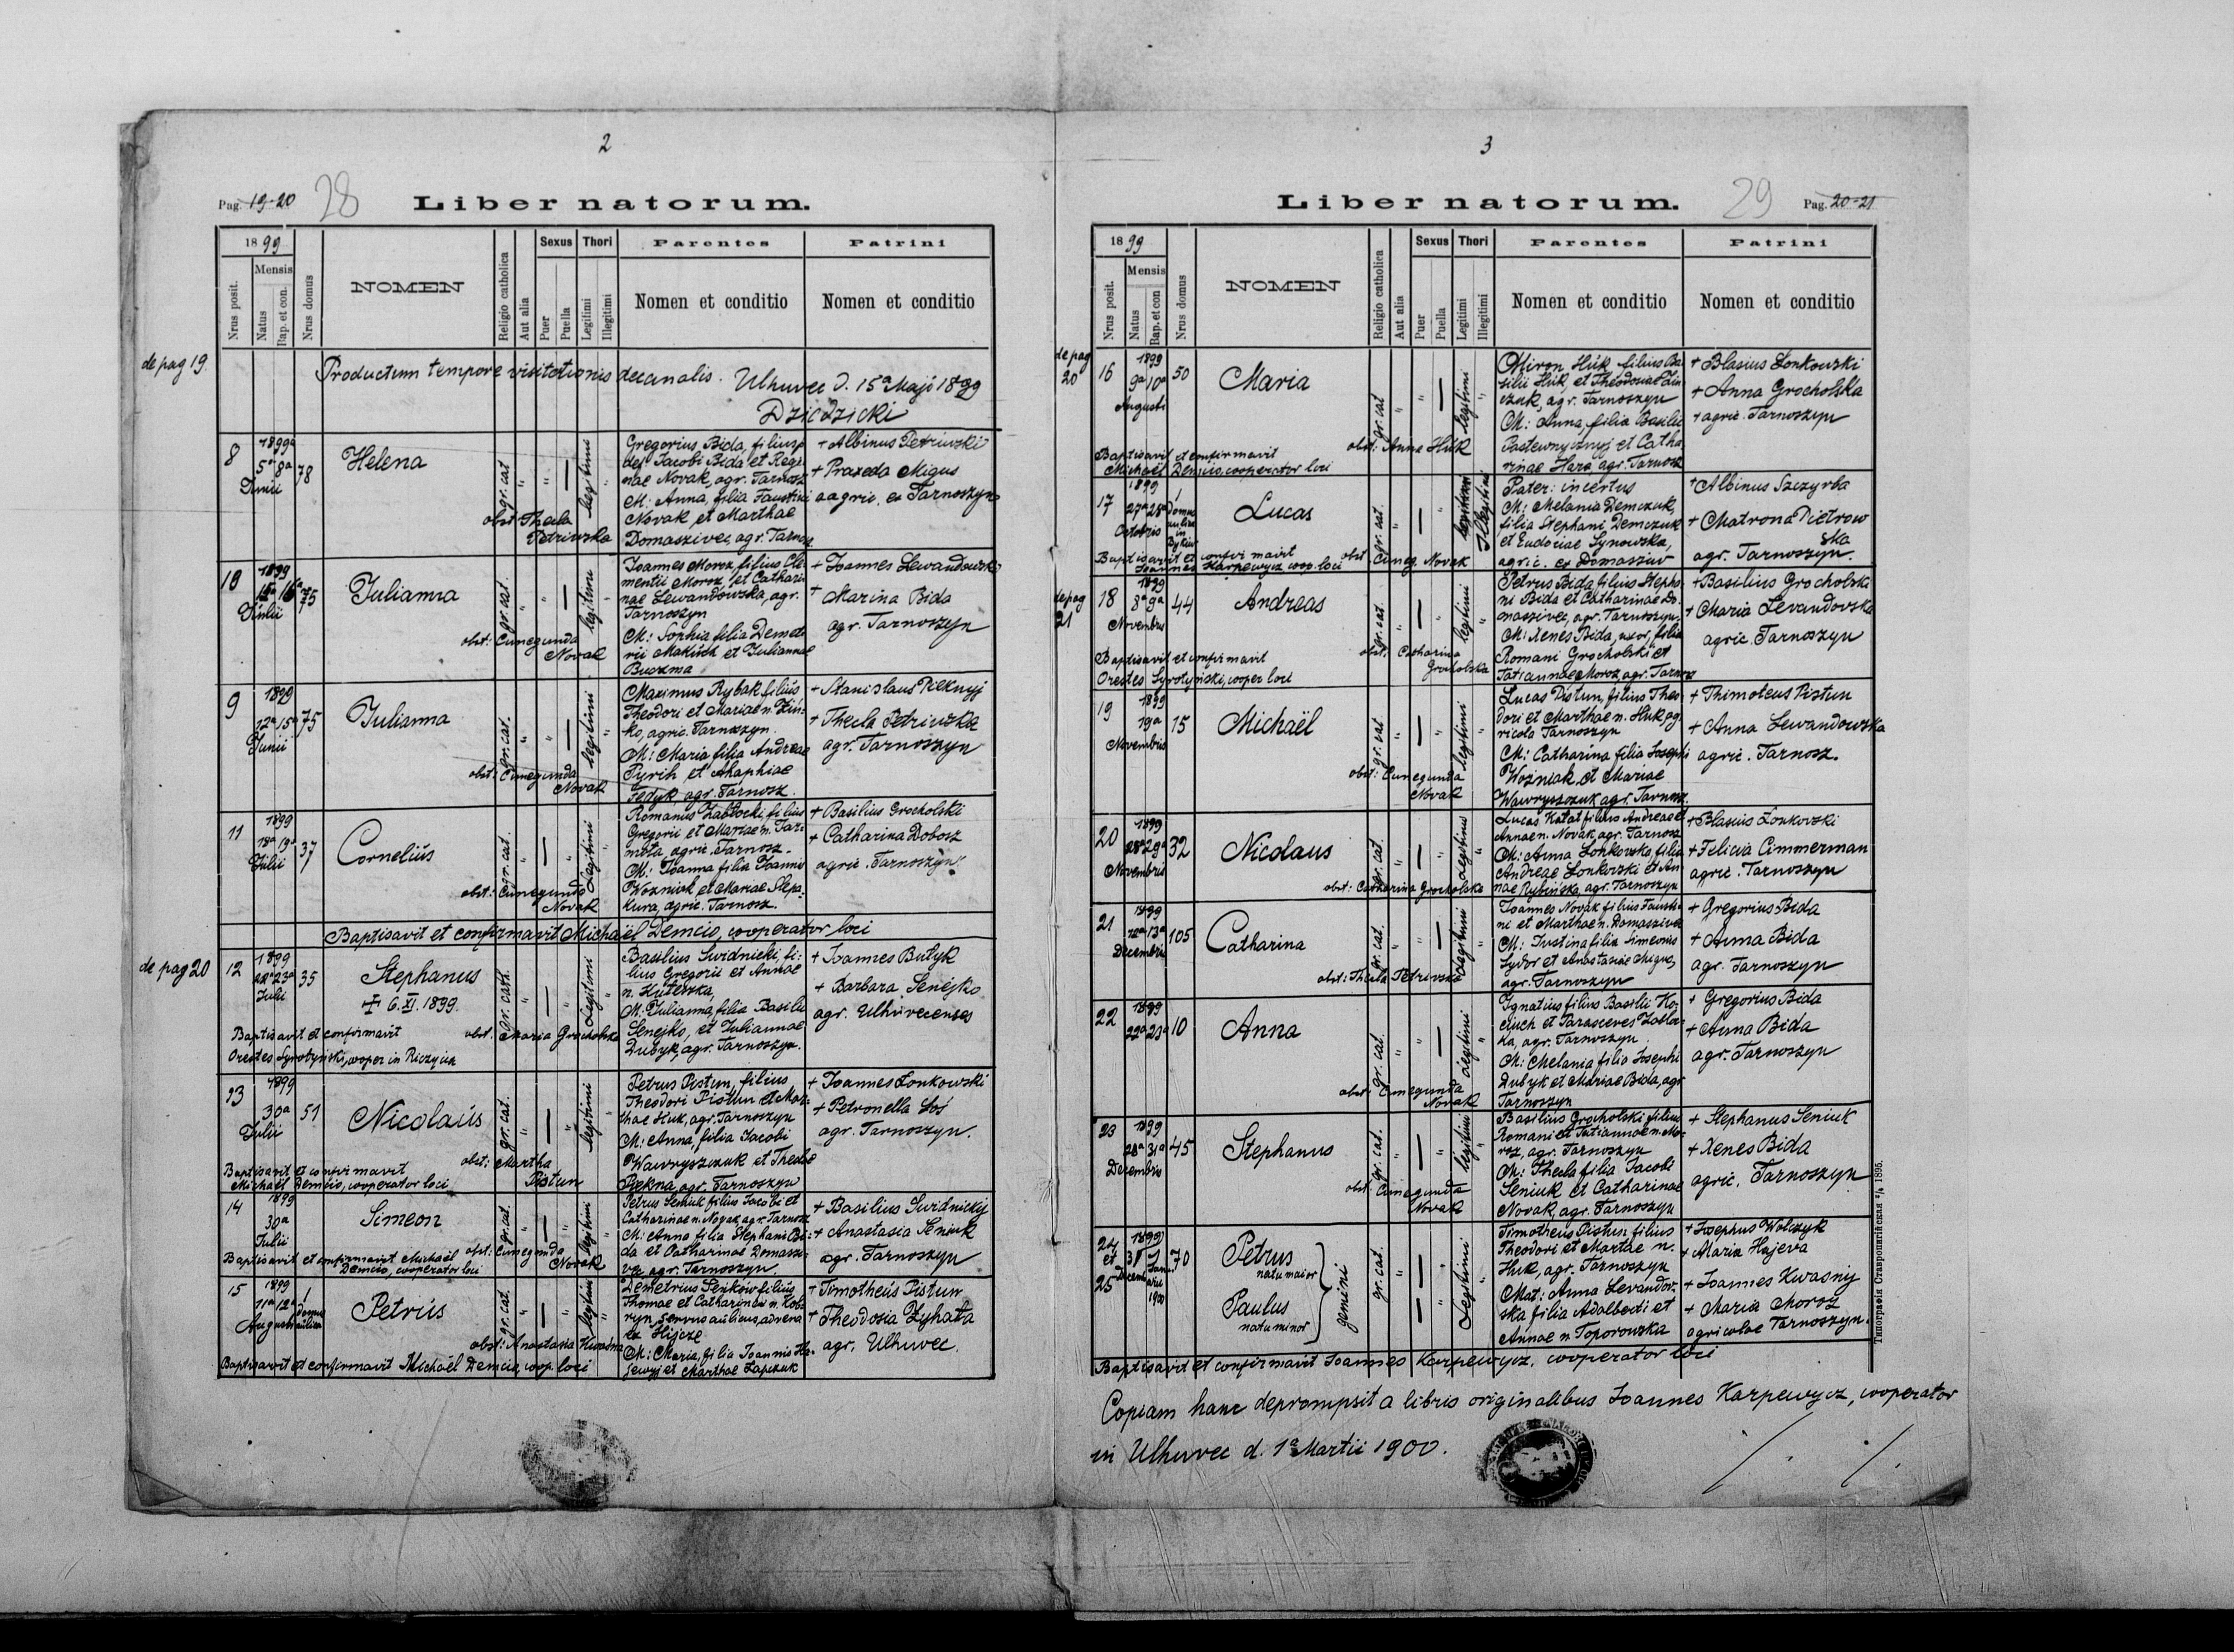 2
Pag. 19-20
28
Liber natorum.
1899
Nrus posit.
Mensis
Natus
Bap. et con.
Nrus domus
NOMEN
Religio catholica
Aut alia
Sexus
Puer
Puella
Thori
Legitimi
Illegitimi
Parentes
Nomen et conditio
Patrini
Nomen et conditio
de pag 19.
Productum tempore visitationis decanalis. Ulhuvec d. 15a Maji 1899
Dziedzicki
8
1899
5a 8a
Junii
78
Helena
gr. cat
legitimi
obst. Thecla
Petriwska
Gregorius Bida, filius
Jacobi Bida et Regi-
nae Novak, agr. Tarnosz
M: Anna, filia Faustini
Novak et Marthae
Domaszivec, agr. Tarnosz
+ Albinus Petriwski
+ Praxeda Migus
agric. ex Tarnoszyn
10
1899
15a 16a
Julii
75
Julianna
gr. cat.
legitimi
obst: Cunegunda
Novak
Joannes Moroz, filius Cle-
mentii Moroz, et Cathari
nae Lewandowska, agr.
Tarnoszyn
M: Sophia filia Demet
rii Makuch et Juliannae
Buczma
+ Joannes Lewandowski
+ Marina Bida
agr. Tarnoszyn
9
1899
12a 15a
Junii
75
Julianna
gr. cat.
legitimi
obst: Cunegunda
Novak
Maximus Rybak filius
Theodori et Mariae n. Zin-
ko, agric. Tarnoszyn.
M: Maria filia Andreae
Pyrih et Ahaphiae
Fedyk, agr. Tarnosz.
+ Stanislaus Pieknyj
+ Thecla Petriwska
agr. Tarnoszyn
11
1899
18a 19a
Julii
37
Cornelius
gr. cat.
Legitimi
obst: Cunegunda
Novak
Romanus Zabłocki, filius
Gregorii et Mariae n. Jar-
mota agric. Tarnosz.
M: Joanna filia Joannis
Wozniak et Mariae Slepa-
kura, agric. Tarnosz.
+ Basilius Grocholski
+ Catharina Dobosz
agric. Tarnoszyn
Baptisavit et confirmavit Michaël Demcio, cooperator loci
de pag 20
12
1899
22a 23a
Julii
35
Stephanus
+ 6. XI. 1899
gr. cath.
Legitimi
Baptisavit et confirmavit
obst: Maria Grocholska
Orestes Syrotyński, cooper in Rzeczyca
Basilius Swidnicki, fi-
lius Gregorii et Annae
n. Huterska,
M: Julianna, filia Basilii
Senejko, et Juliannae
Dubyk, agr. Tarnoszyn.
+ Joannes Butyk
+ Barbara Senejko
agr. Ulhuvecenses
13
1899
30a
Julii
51
Nicolaus
gr. cat.
legitimi
obst: Martha
Pistun
Baptisavit et confirmavit
Michaël Demcio, cooperator loci
Petrus Pistun, filius
Theodori Pistun et Mar-
thae Huk, agr. Tarnoszyn
M: Anna, filia Jacobi
Wawryszczuk et Theclae
Piekna, agr. Tarnoszyn
+ Joannes Lonkowski
+ Petronella Łoś
agr. Tarnoszyn.
14
1899
30a
Julii
Simeon
gr. cat.
legitimi
Baptisavit et confirmavit Michaël
Demcio, cooperator loci
obst: Cunegunda
Novak
Petrus Seniuk filius Jacobi et
Catharinae n. Novak, agr. Tarnosz
M: Anna filia Stephani Bi-
da et Catharinae Domaszi-
vec agr. Tarnoszyn
+ Basilius Swidnickij
+ Anastasia Seniuk
agr. Tarnoszyn
15
1899
11a 12a
Augusti
1
domus
aulica
Petrus
gr. cat.
legitimi
obst: Anastasia
Baptisavit et confirmavit Michaël Demcio, coop. loci
Demetrius Senkow filius
Thomae et Catharinae n. Kob-
ryn, servus aulicus, advena
ex Hijcze
M: Maria, filia Joannis
et Marthae Łapczuk
+ Timotheus Pistun
+ Theodosia Zyhata
agr. Ulhuvec.
3
Liber natorum.
29
Pag. 20-21
1899
Nrus posit.
Mensis
Natus
Bap. et con
Nrus domus
NOMEN
Religio catholica
Aut alia
Sexus
Puer
Puella
Thori
Legitimi
Illegitimi
Parentes
Nomen et conditio
Patrini
Nomen et conditio
de pag
20
16
1899
9a 10a
Augusti
50
Maria
gr. cat
legitimi
obst: Anna Huk
Baptisavit et confirmavit
Michaël Demcio, cooperator loci
Miron Huk filius Ba-
silii Huk et Theodosiae
agr. Tarnoszyn
M: Anna, filia Basilii
Pastewnycznyj et Catha
rinae Hara agr. Tarnosz
+ Blasius Lonkowski
+ Anna Grocholska
+ agric. Tarnoszyn
17
1899
27a 28a
Octobris
1
Domus
aulica
in
Bytów
Lucas
gr. cat.
Illegitimi
Baptisavit et confirmavit
Joannes Karpewycz coop. loci
obst Cuneg. Novak
Pater: incertus
M: Melania Demczuk,
filia Stephani Demczuk
et Eudociae Synowska,
agric. ex Domaszow
+ Albinus Szczyrba
+ Matrona Pietrow
ska
agr. Tarnoszyn.
de pag
21
18
1899
8a 9a
Novembris
44
Andreas
gr. cat.
legitimi
obst: Catharina
Grocholska
Baptisavit et confirmavit
Orestes Syrotyński, cooper loci
Petrus Bida filius Stepha
ni Bida et Catharinae Do-
maszivec, agr. Tarnoszyn.
M: Xenes Bida, uxor, filia
Romani Grocholski et
Tatiannae Moroz, agr. Tarnosz
+ Basilius Grocholski
+ Maria Levandovska
agric. Tarnoszyn
19
1899
19a
Novembris
15
Michaël
gr. cat
legitimi
obst: Cunegunda
Novak
Lucas Pistun, filius Theo-
dori et Marthae n. Huk, ag-
ricola Tarnoszyn
M: Catharina filia Josephi
Wozniak et Mariae
Wawryszczuk agr. Tarnosz.
+ Thimoteus Pistun
+ Anna Lewandowska
agric. Tarnosz.
20
1899
28a 29a
Novembris
32
Nicolaus
gr. cat.
Legitimi
obst: Catharina Grocholska
Lucas Kałat filius Andreae et
Annae n. Novak, agr. Tarnosz
M: Anna Lonkovska, filia
Andreae Lonkovski et An-
nae Rybińska, agr. Tarnoszyn
+ Blasius Lonkovski
+ Felicia Cimmerman
agric. Tarnoszyn
21
1899
12a 13a
Decembris
105
Catharina
gr. cat.
Legitimi
obst: Thecla Petrivska
Joannes Novak filius Fausti-
ni et Marthae n. Domaszivec
M: Justina filia Simeonis
Sydor et Anastasiae Migus,
agr. Tarnoszyn
+ Gregorius Bida
+ Anna Bida
agr. Tarnoszyn
22
1899
22a 23a
10
Anna
gr. cat.
Legitimi
obst: Cunegunda
Novak
Ignatius filius Basilii Ko-
ciuch et Parasceves
agr. Tarnoszyn
M: Melania filia Josephi
Dubyk et Mariae Bida, agr
Tarnoszyn
+ Gregorius Bida
+ Anna Bida
agr. Tarnoszyn
23
1899
28a 31a
Decembris
45
Stephanus
gr. cat.
legitimi
obst: Cunegunda
Novak
Basilius Grocholski filius
Romani et Tatiannae n. Mo-
roz, agr. Tarnoszyn
M: Thecla filia Jacobi
Seniuk et Catharinae
Novak, agr. Tarnoszyn
+ Stephanus Seniuk
+ Xenes Bida
agric. Tarnoszyn
24
et
25
1899
31 1
Decembris Januarii
1900
70
Petrus
natu maior
Paulus
natu minor
gemini
gr. cat.
Legitimi
Timotheus Pistun filius
Theodori et Martae n.
Huk, agr. Tarnoszyn
Mat: Anna Levandov-
ska filia Adalberti et
Annae n Toporowska
+ Josephus Wolczyk
+ Maria Hajeva
+ Joannes Kwasnij
+ Maria Moroz
agricolae Tarnoszyn.
Baptisavit et confirmavit Joannes Karpewycz, cooperator loci
Copiam hanc deprompsit a libris originalibus Joannes Karpewycz, cooperator
in Ulhuvec d. 1a Martii 1900.
Типографія Ставропигійская 1895.